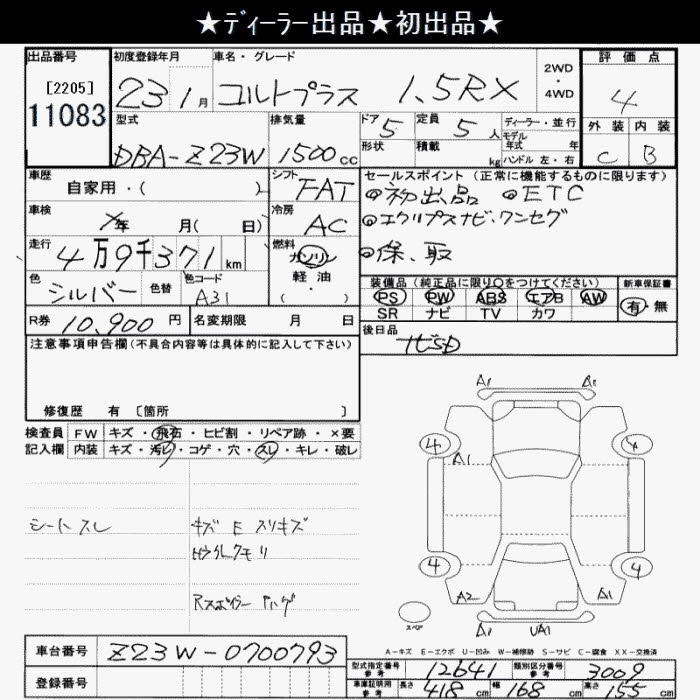 ★ディーラー出品★初出品★
出品番号 初度登録年月 車名・グレード 2WD・4WD 評価点
[2205]
11083
23 1月 コルトプラス 1.5RX 4
型式 排気量 ドア 定員 ディーラー・並行 外装 内装
5 5人 モデル年式 年
DBA-Z23W 1500cc 形状 積載 kg ハンドル 左・右 C B
車歴 シフト セールスポイント(正常に機能するものに限ります)
自家用・( ) FAT ◎初出品 ◎ETC
車検 冷房 ◎エクリプスナビ・ワンセグ
年 月( 日) AC
走行 燃料 ◎保、取
4万9千371km ガソリン
色 色替 色コード 軽・油 装備品(純正品に限り○をつけてください) 新車保証書
シルバー A31 ( ・ ) PS PW ABS エアB AW 有・無
R券 10,900円 名変期限 月 日 SR ナビ TV カワ
注意事項申告欄(不具合内容等は具体的に記入して下さい) 後日品
修復歴 有 〔箇所 〕
検査員 FW キズ・飛石・ヒビ割・リペア跡・×要
記入欄 内装 キズ・汚レ・コゲ・穴・スレ・キレ・破レ
A1 A1
4 4
A1
シートスレ キズ E スリキズ
4 4
A2 A1
スペア UA1
A-キズ E-エクボ U-凹み W-補修跡 S-サビ C-腐食 XX-交換済
車台番号 Z23W-0700793
型式指定番号 参考 12641 類別区分番号 参考 3009
登録番号 車庫証明用 参考 長さ 418cm 幅 168cm 高さ 155cm